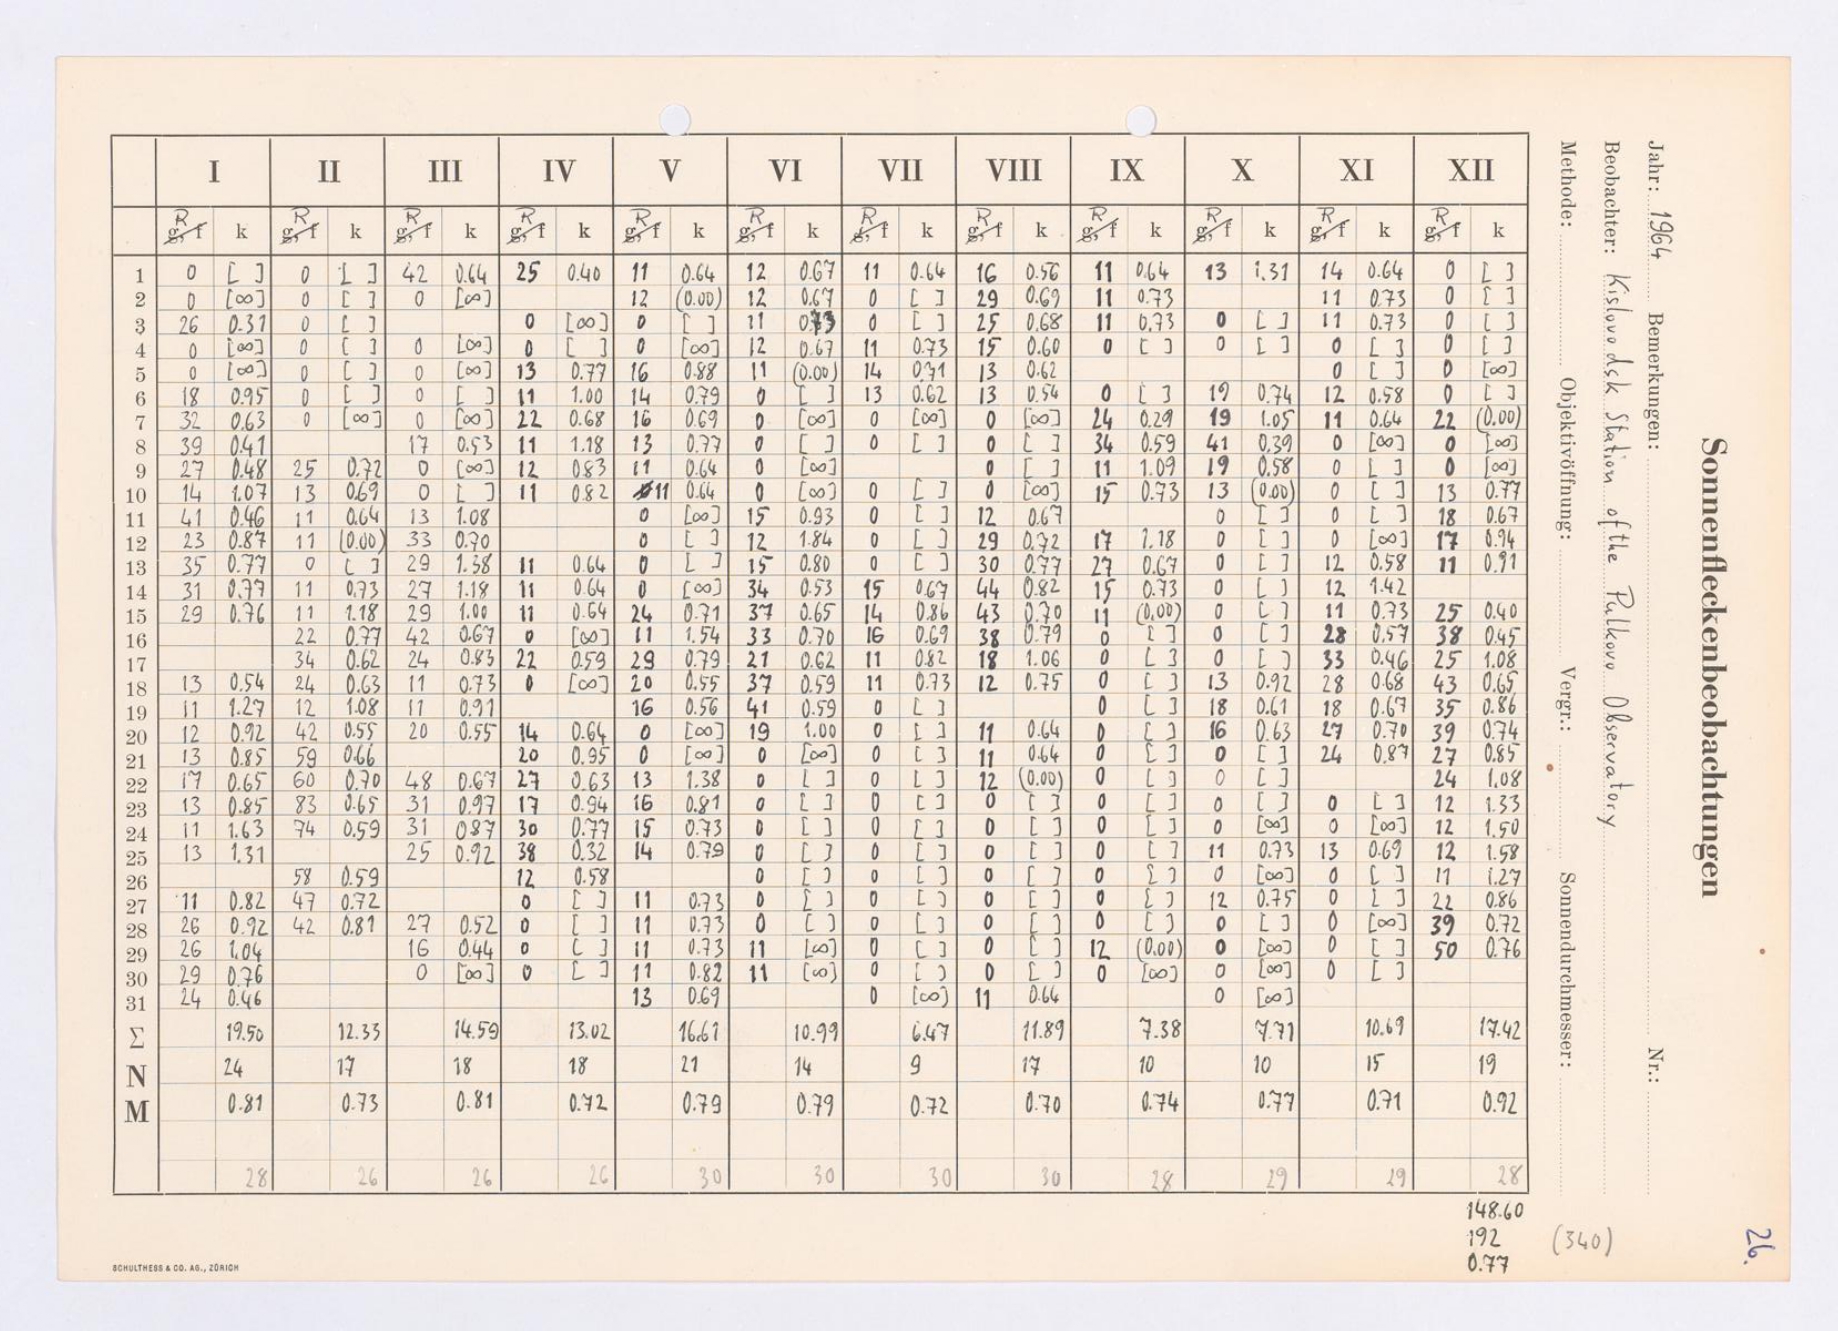 Sonnenfleckenbeobachtungen
Jahr: 1964 Bemerkungen: Nr.:
Beobachter: Kislovodsk Station of the Pulkovo Observatory
Methode: Objektivöffnung: Vergr.: Sonnendurchmesser:
I II III IV V VI VII VIII IX X XI XII
R g, f k R g, f k R g, f k R g, f k R g, f k R g, f k R g, f k R g, f k R g, f k R g, f k R g, f k R g, f k
1 0 [ ] 0 [ ] 42 0.64 25 0.40 11 0.64 12 0.67 11 0.64 16 0.56 11 0.64 13 1.31 14 0.64 0 [ ]
2 0 [∞] 0 [ ] 0 [∞] 12 (0.00) 12 0.67 0 [ ] 29 0.69 11 0.73 11 0.73 0 [ ]
3 26 0.31 0 [ ] 0 [∞] 0 [ ] 11 0.73 0 [ ] 25 0.68 11 0.73 0 [ ] 11 0.73 0 [ ]
4 0 [∞] 0 [ ] 0 [∞] 0 [ ] 0 [∞] 12 0.67 11 0.73 15 0.60 0 [ ] 0 [ ] 0 [ ] 0 [ ]
5 0 [∞] 0 [ ] 0 [∞] 13 0.77 16 0.88 11 (0.00) 14 0.71 13 0.62 0 [ ] 0 [∞]
6 18 0.95 0 [ ] 0 [ ] 11 1.00 14 0.79 0 [ ] 13 0.62 13 0.54 0 [ ] 19 0.74 12 0.58 0 [ ]
7 32 0.63 0 [∞] 0 [∞] 22 0.68 16 0.69 0 [∞] 0 [∞] 0 [∞] 24 0.29 19 1.05 11 0.64 22 (0.00)
8 39 0.41 17 0.53 11 1.18 13 0.77 0 [ ] 0 [ ] 0 [ ] 34 0.59 41 0.39 0 [∞] 0 [∞]
9 27 0.48 25 0.72 0 [∞] 12 0.83 11 0.64 0 [∞] 0 [ ] 11 1.09 19 0.58 0 [ ] 0 [∞]
10 14 1.07 13 0.69 0 [ ] 11 0.82 11 0.64 0 [∞] 0 [ ] 0 [∞] 15 0.73 13 (0.00) 0 [ ] 13 0.77
11 41 0.46 11 0.64 13 1.08 0 [∞] 15 0.93 0 [ ] 12 0.67 0 [ ] 0 [ ] 18 0.67
12 23 0.87 11 (0.00) 33 0.70 0 [ ] 12 1.84 0 [ ] 29 0.72 17 1.18 0 [ ] 0 [∞] 17 0.94
13 35 0.77 0 [ ] 29 1.38 11 0.64 0 [ ] 15 0.80 0 [ ] 30 0.77 27 0.67 0 [ ] 12 0.58 11 0.91
14 31 0.77 11 0.73 27 1.18 11 0.64 0 [∞] 34 0.53 15 0.67 44 0.82 15 0.73 0 [ ] 12 1.42
15 29 0.76 11 1.18 29 1.00 11 0.64 24 0.71 37 0.65 14 0.86 43 0.70 11 (0.00) 0 [ ] 11 0.73 25 0.40
16 22 0.77 42 0.67 0 [∞] 11 1.54 33 0.70 16 0.69 38 0.79 0 [ ] 0 [ ] 28 0.57 38 0.45
17 34 0.62 24 0.83 22 0.59 29 0.79 21 0.62 11 0.82 18 1.06 0 [ ] 0 [ ] 33 0.46 25 1.08
18 13 0.54 24 0.63 11 0.73 0 [∞] 20 0.55 37 0.59 11 0.73 12 0.75 0 [ ] 13 0.92 28 0.68 43 0.65
19 11 1.27 12 1.08 11 0.91 16 0.56 41 0.59 0 [ ] 0 [ ] 18 0.61 18 0.67 35 0.86
20 12 0.92 42 0.55 20 0.55 14 0.64 0 [∞] 19 1.00 0 [ ] 11 0.64 0 [ ] 16 0.63 27 0.70 39 0.74
21 13 0.85 59 0.66 20 0.95 0 [∞] 0 [∞] 0 [ ] 11 0.64 0 [ ] 0 [ ] 24 0.87 27 0.85
22 17 0.65 60 0.70 48 0.67 27 0.63 13 1.38 0 [ ] 0 [ ] 12 (0.00) 0 [ ] 0 [ ] 24 1.08
23 13 0.85 83 0.65 31 0.97 17 0.94 16 0.81 0 [ ] 0 [ ] 0 [ ] 0 [ ] 0 [ ] 0 [ ] 12 1.33
24 11 1.63 74 0.59 31 0.87 30 0.77 15 0.73 0 [ ] 0 [ ] 0 [ ] 0 [ ] 0 [∞] 0 [∞] 12 1.50
25 13 1.31 25 0.92 38 0.32 14 0.79 0 [ ] 0 [ ] 0 [ ] 0 [ ] 11 0.73 13 0.69 12 1.58
26 58 0.59 12 0.58 0 [ ] 0 [ ] 0 [ ] 0 [ ] 0 [∞] 0 [ ] 11 1.27
27 11 0.82 47 0.72 0 [ ] 11 0.73 0 [ ] 0 [ ] 0 [ ] 0 [ ] 12 0.75 0 [ ] 22 0.86
28 26 0.92 42 0.81 27 0.52 0 [ ] 11 0.73 0 [ ] 0 [ ] 0 [ ] 0 [ ] 0 [ ] 0 [∞] 39 0.72
29 26 1.04 16 0.44 0 [ ] 11 0.73 11 [∞] 0 [ ] 0 [ ] 12 (0.00) 0 [∞] 0 [ ] 50 0.76
30 29 0.76 0 [∞] 0 [ ] 11 0.82 11 [∞] 0 [ ] 0 [ ] 0 [∞] 0 [∞] 0 [ ]
31 24 0.46 13 0.69 0 [∞] 11 0.64 0 [∞]
Σ 19.50 12.33 14.59 13.02 16.61 10.99 6.47 11.89 7.38 7.71 10.69 17.42
N 24 17 18 18 21 14 9 17 10 10 15 19
M 0.81 0.73 0.81 0.72 0.79 0.79 0.72 0.70 0.74 0.77 0.71 0.92
28 26 26 26 30 30 30 30 28 29 29 28
148.60
192 (340)
0.77
26.
SCHULTHESS & CO. AG., ZÜRICH